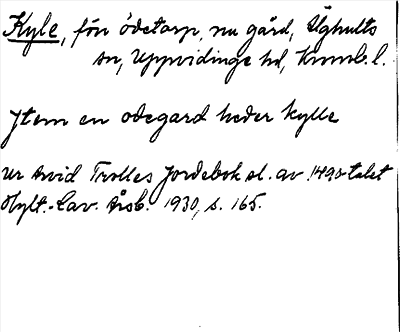 Kyle, förr ödetorp, nu gård, Älghults
sn, Uppvidinge hd, Kronob. l.
Jtem en ødegard heder kylle
ur Arvid Trolles Jordebok sl. av 1490-talet
Hylt.-Cav. Årsb. 1930, s. 165.